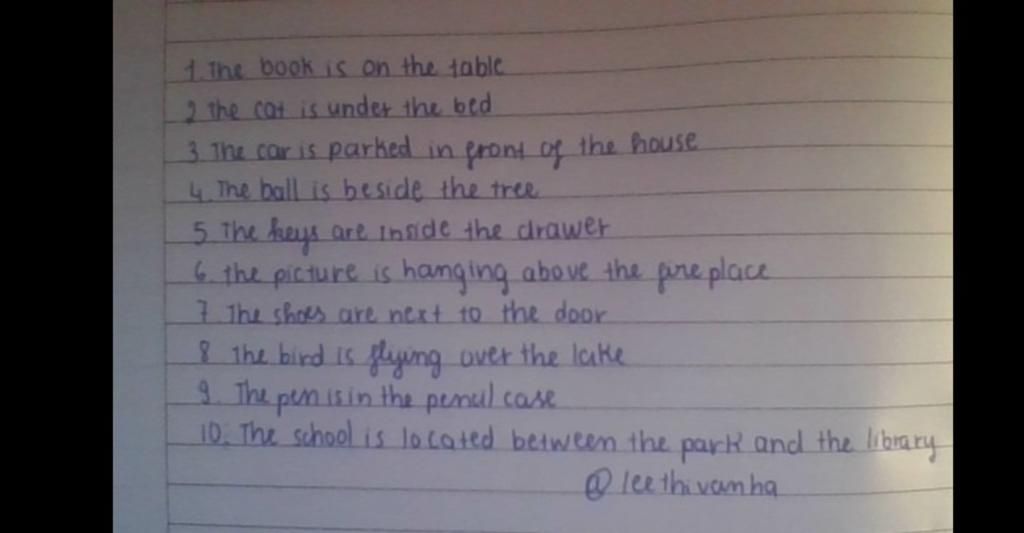 1. The book is on the table
2 The cat is under the bed
3. The car is parked in front of the house
4. The ball is beside the tree
5. The keys are inside the drawer
6. the picture is hanging above the fireplace
7. The shoes are next to the door
8 The bird is flying over the lake
9. The pen is in the pencil case
10. The school is located between the park and the library
@leethivamha